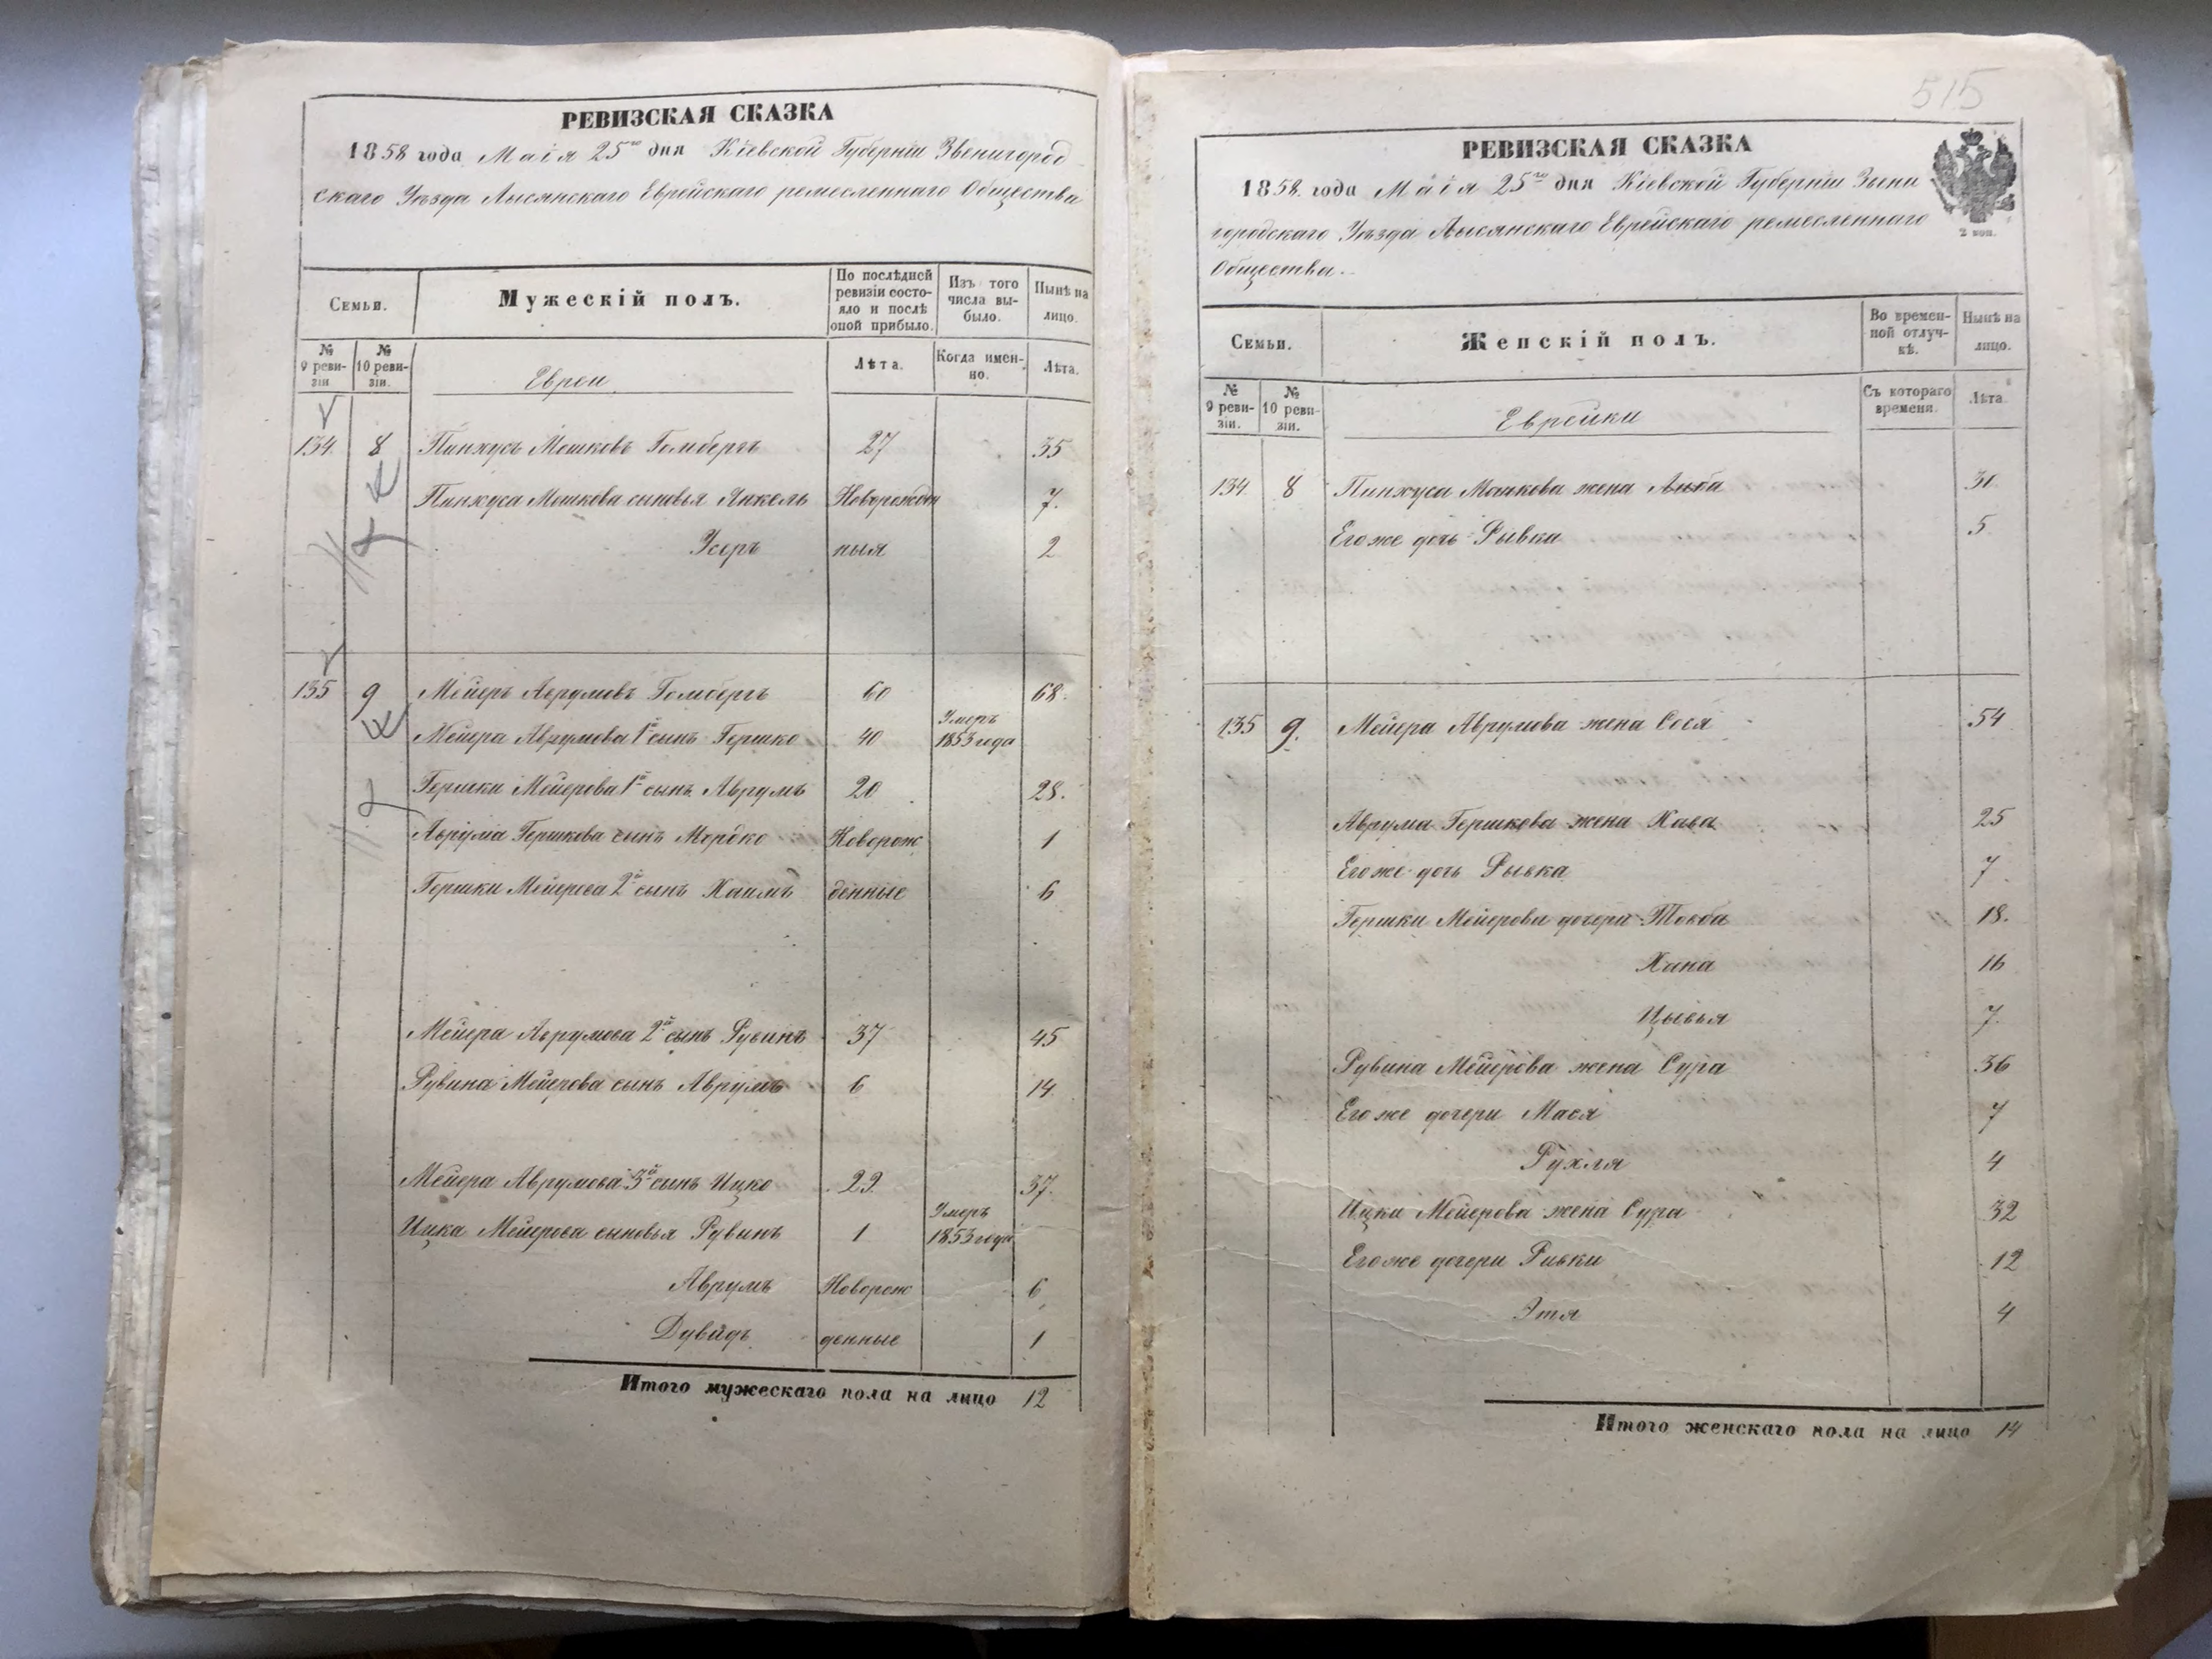 РЕВИЗСКАЯ СКАЗКА
1858 года Маія 25го дня Кіевской Губерніи Звенигород
скаго Уѣзда Лысянскаго Еврейскаго ремесленнаго Общества
Семьи. Мужескій полъ. По послѣдней ревизіи состояло и послѣ оной прибыло. Изъ того числа выбыло. Нынѣ на лицо.
№ 9 ревизіи. № 10 ревизіи. Евреи Лѣта. Когда именно. Лѣта.
134. 8 Пинхусъ Мошковъ Гомбергъ 27 35
Пинхуса Мошкова сыновья Янкель Новорожден 7.
Усеръ ныя 2
135 9 Мейеръ Аврумовъ Гомбергъ 60 68.
Мейера Аврумова 1й сынъ Гершко 40 Умеръ 1853 года
Гершки Мейерова 1й сынъ Аврумъ 20 28.
Аврума Гершкова сынъ Мордко Новорож 1
Гершки Мейерова 2й сынъ Хаимъ денные 6
Мейера Аврумова 2й сынъ Рувинъ 37 45
Рувина Мейерова сынъ Аврумъ 6 14
Мейера Аврумова 3й сынъ Ицко 29. 37.
Ицка Мейерова сыновья Рувинъ 1 Умеръ 1853 года
Аврумъ Новорож 6
Дувидъ денные 1
Итого мужескаго пола на лицо 12
515
РЕВИЗСКАЯ СКАЗКА
1858. года Маія 25го дня Кіевской Губерніи Звени
городскаго Уѣзда Лысянскаго Еврейскаго ремесленнаго
Общества.
2 коп.
Семьи. Женскій полъ. Во временной отлучкѣ. Нынѣ на лицо.
№ 9 ревизіи. № 10 ревизіи. Еврейки Съ котораго времени. Лѣта.
134. 8 Пинхуса Мошкова жена Либа 31
Его же дочь Рывка 5.
135 9. Мейера Аврумова жена Сося 54
Аврума Гершкова жена Хава 25
Его же дочь Рывка 7
Гершки Мейерова дочери Товба 18.
Хана 16
Цывья 7.
Рувина Мейерова жена Сура 36
Его же дочери Мася 7
Рухля 4
Ицки Мейерова жена Сура 32
Его же дочери Ривки 12
Этя 4
Итого женскаго пола на лицо 14